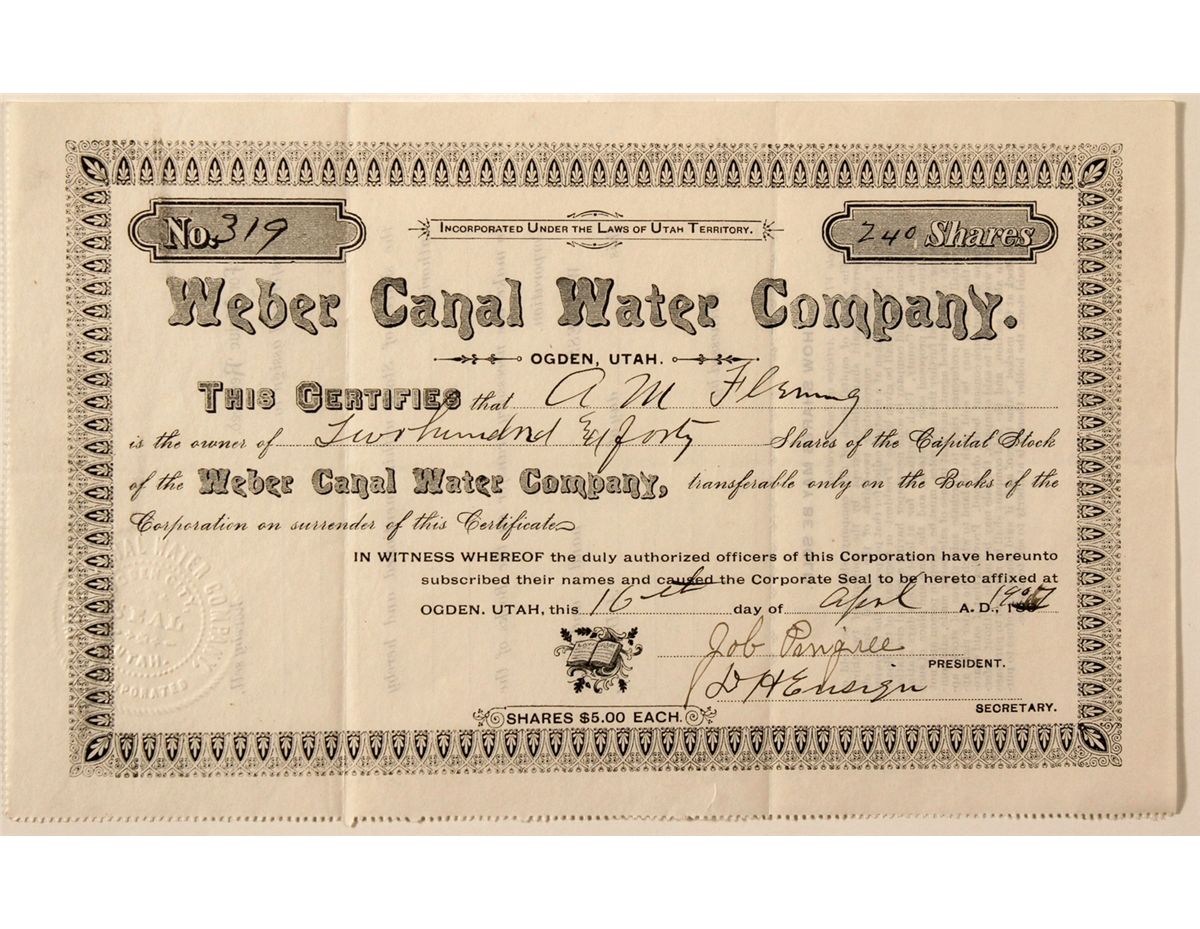 No. 319
INCORPORATED UNDER THE LAWS OF UTAH TERRITORY.
240 Shares
Weber Canal Water Company.
OGDEN, UTAH.
THIS CERTIFIES that A M Fleming
is the owner of Two hundred & forty Shares of the Capital Stock
of the Weber Canal Water Company, transferable only on the Books of the
Corporation on surrender of this Certificate
IN WITNESS WHEREOF the duly authorized officers of this Corporation have hereunto
subscribed their names and caused the Corporate Seal to be hereto affixed at
OGDEN, UTAH, this 16th day of April A. D.,
Job Pingree
PRESIDENT.
D H Ensign
SECRETARY.
SHARES $5.00 EACH.
CANAL WATER COMPANY
OGDEN CITY,
SEAL
UTAH.
INCORPORATED